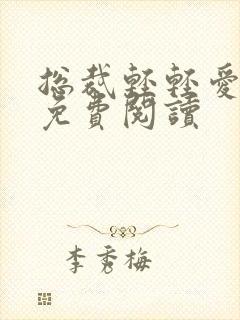 總裁輕輕愛
免費閱讀
李秀梅